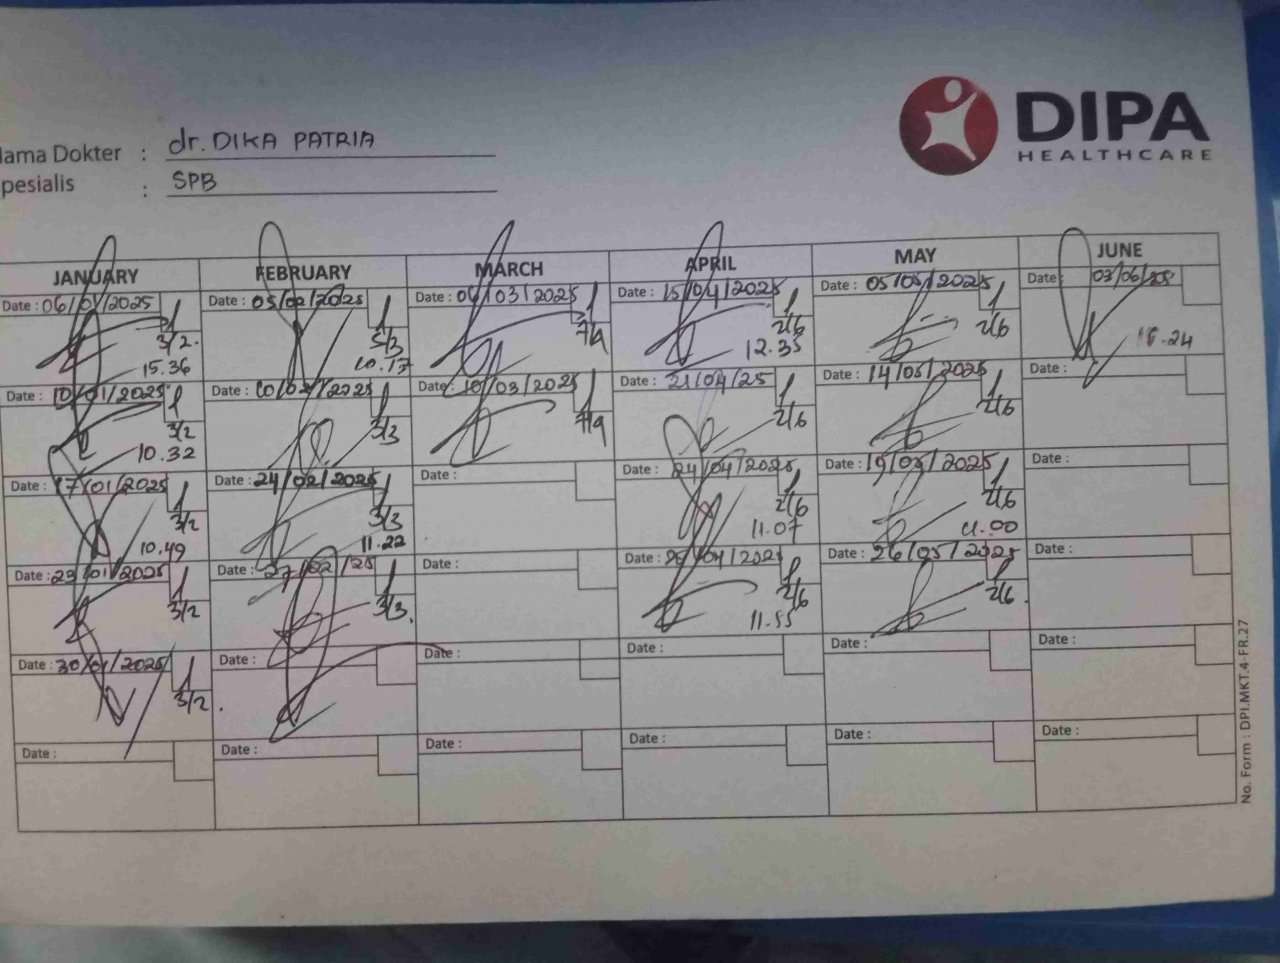 DIPA
HEALTHCARE
ama Dokter : dr. DIKA PATRIA
pesialis : SPB
JANUARY FEBRUARY MARCH APRIL MAY JUNE
Date : 06/01/2025 Date : 05/02/2025 Date : 06/03/2025 Date : 15/04/2025 Date : 05/05/2025 Date : 03/06/25
3/2. 3/3 7/4 2/6 2/6
15.36 10.17 12.35 24
Date : 10/01/2025 Date : 10/02/2025 Date : 10/03/2025 Date : 21/04/25 Date : 14/05/2025 Date :
3/2 3/3 7/4 2/6 2/6
10.32
Date : 17/01/2025 Date : 24/02/2025 Date : Date : 24/04/2025 Date : 19/05/2025 Date :
3/2 3/3 2/6 2/6
10.49 11.22 11.07 11.00
Date : 23/01/2025 Date : 27/02/25 Date : Date : /04/2025 Date : 26/05/2025 Date :
3/2 3/3. 2/6 2/6.
11.55
Date : 30/01/2025 Date : Date : Date : Date : Date :
3/2.
Date : Date : Date : Date : Date : Date :
No. Form : DPI.MKT.4-FR.27